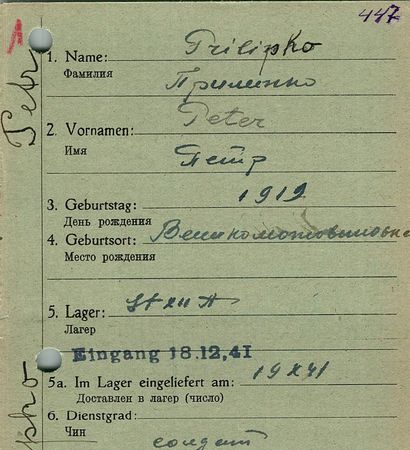 1
447
1. Name: Prilipko
Фамилия Прилипко
2. Vornamen: Peter
Имя Петр
3. Geburtstag: 1919
День рождения
4. Geburtsort:
Место рождения
5. Lager:
Лагер
Eingang 18.12,41
5a. Im Lager eingeliefert am: 19 XI 41
Доставлен в лагер (число)
6. Dienstgrad:
Чин солдат
Petr
pko